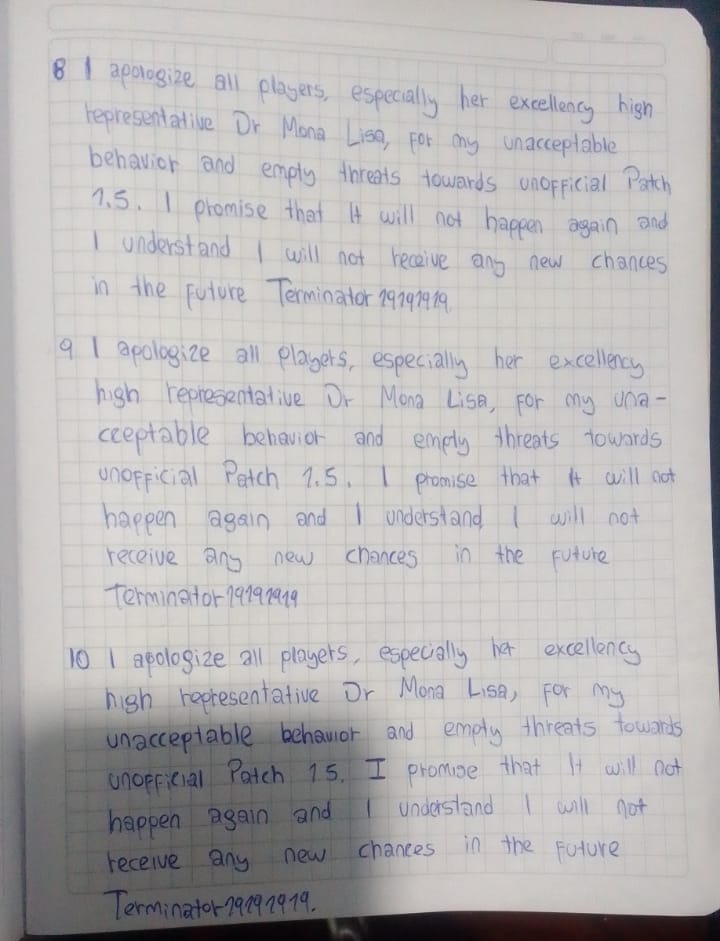 8 I apologize all players, especially her excellency high
representative Dr Mona Lisa, for my unacceptable
behavior and empty threats towards unofficial Patch
1.5. I promise that It will not happen again and
I understand I will not receive any new chances
in the future Terminator 19191919
9 I apologize all players, especially her excellency
high representative Dr Mona Lisa, for my una-
cceptable behavior and empty threats towards
unofficial Patch 1.5. I promise that It will not
happen again and I understand I will not
receive any new chances in the future
Terminator 19191919
10 I apologize all players, especially her excellency
high representative Dr Mona Lisa, for my
unacceptable behavior and empty threats towards
unofficial Patch 15. I promise that It will not
happen again and I understand I will not
receive any new chances in the future
Terminator 19191919.